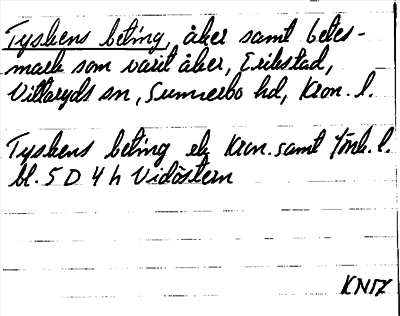 Tyskens beting, åker samt betes-
mark som varit åker, Erikstad,
Vittaryds sn, Sunnerbo hd, Kron. l.
Tyskens beting ek Kron. samt Jönk. l.
bl. 5 D 4 h Vidöstern
KN17